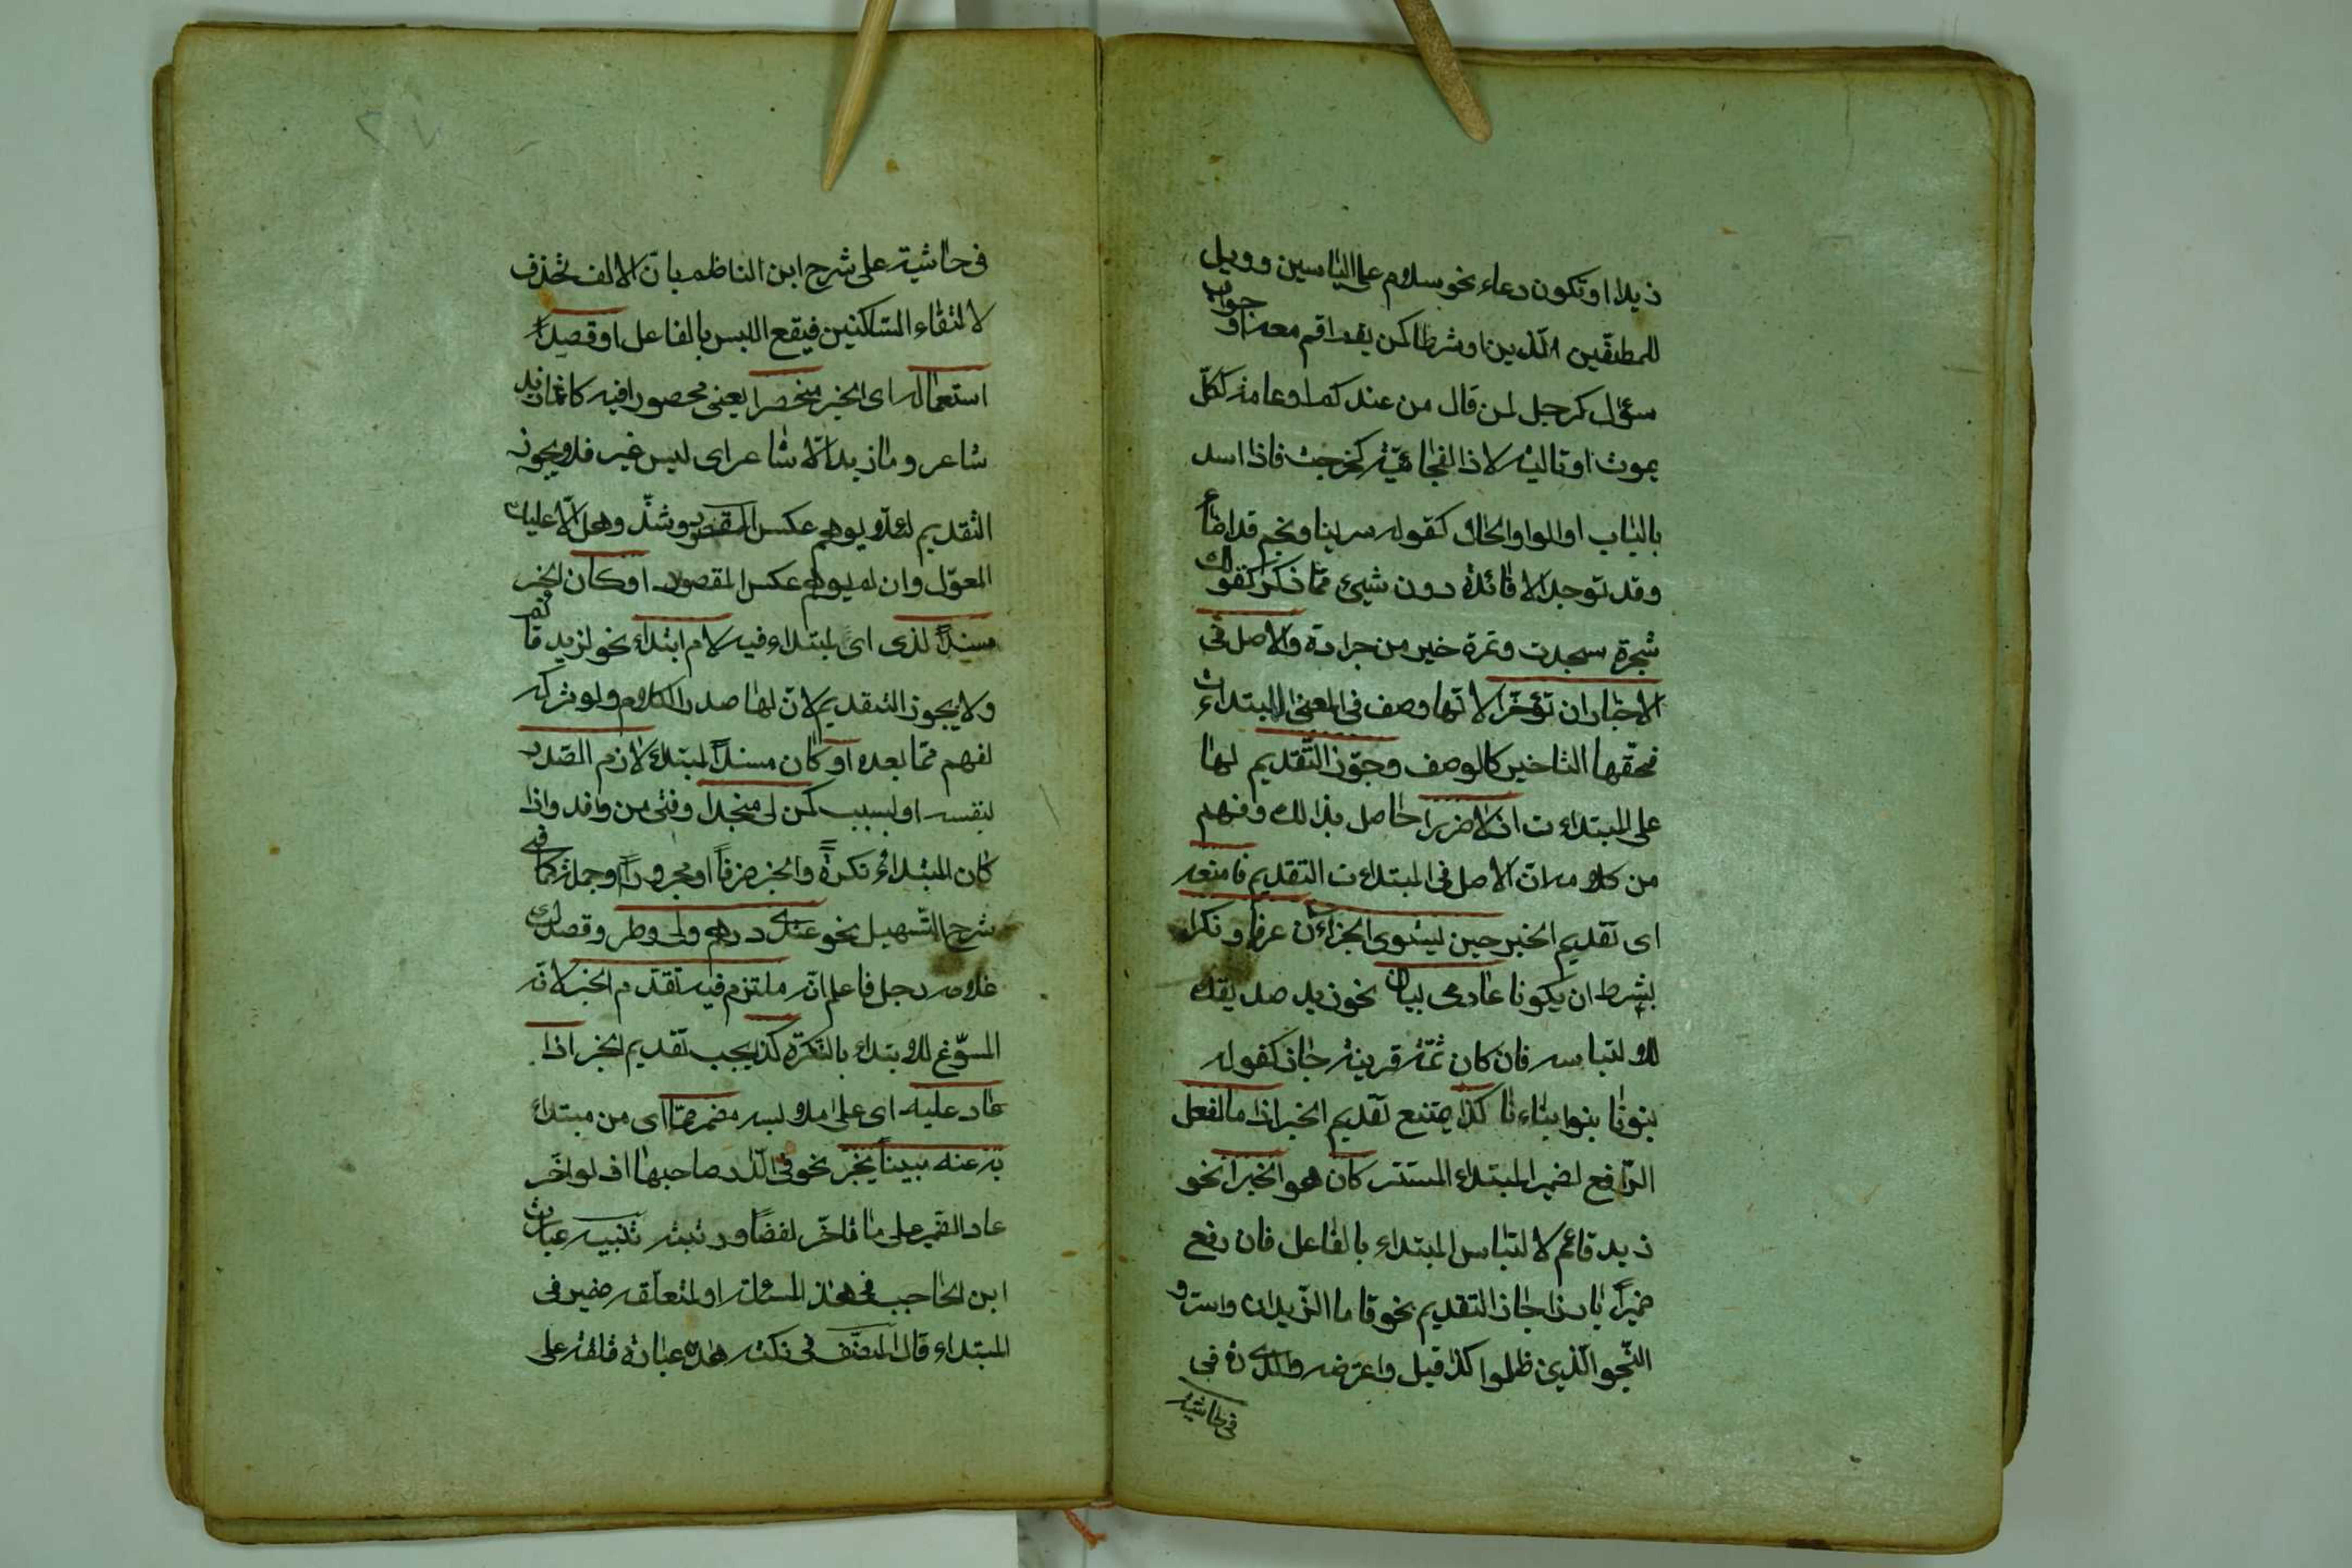 زيدا او تكون دعاء نحو سلام على الياسين وويل
للمطفّفين الّذين او شرطا كمن يقم اقم معه او جواب
سؤال كرجل لمن قال من عندك او عامة ككلّ
يموت او تالية لاذا لفجائيّة كخرجت فاذا اسد
بالباب او لواو الحال كقوله سرينا ونجم قد اضاء
وقد توجد الافائدة دون شيئ ممّا ذكر كقولك
شجرة سجدت وتمرة خير من جرادة والاصل في
الاخباران تؤخّرا لانّها وصف في المعنى للمبتداءات
فحقّها التاخير كالوصف وجوّز التّقديم لها
على المبتداءت اذ لاضررا حاصل بذالك وفهم
من كلامه انّ الاصل في المبتداءت التقديم فامنعه
اى تقديم الخبر حين يستوى الجزاءن عرفا ونكرا
بشرط ان يكونا عادمى بيان نحو زيد صديقك
للالتباسه فان كان ثمّة قرينة جاز كقوله
بنونا بنوا بناءنا كذا يمتنع تقديم الخبر اذا ما لفعل
الرّافع لضمير المبتداء المستتر كان هو الخبرا نحو
زيد قائم لالتباس المبتداء بالفاعل فان رفع
ضميراً بارزا جاز التقديم نحو قاما الزّيدان واسرّو
النّجو الّذين ظلموا كذا قيل واعترضه والدى ره في
في حاشية
في حاشية على شرح ابن الناظم بانّ الالف تحذف
لالتقاء السّاكنين فيقع اللبس بالفاعل او قصد
استعماله اى الخبر منحصرا يعنى محصورا فيه كانّما زيد
شاعر وما زيد الّا شاعر اى ليس غير فلا يجوز
التقديم لئلّا يوهم عكس المقصود وشذّ وهل الّا عليك
المعوّل وان لم يوهم عكس المقصود او كان الخبر
مسنداً لذى اى لمبتداء فيه لام ابتداء نحو لزيد قائم
ولا يجوز التقديم لانّ لها صدر الكلام ولو تركه
لفهم ممّا بعده او كان مسنداً لمبتداء لازم الصّدر
بنفسه او بسبب كمن لى منجدا وفتى من وافد واذا
كان المبتداء نكرةً والخبر ظرفاً او مجروراً او جملة كما في
شرح التّسهيل نحو عندى درهم ولى وطر وقصدك
غلامه رجل فاعلم انّه ملتزم فيه تقدّم الخبر لانّه
المسوّغ للابتداء بالنّكرة كذا يجب تقديم الخبر اذا
عاد عليه اى على ملابسه مضمر ممّا اى من مبتداء
به عنه مبيناً يخبر نحو في الدّار صاحبها اذ لو اخّر
عاد الضّمير على ما تاخّر لفظاً ورتبة تنبيه عبارة
ابن الحاجب في هذه المسئلة او لمتعلّقه ضمير في
المبتداء قال المصنّف في نكته هذه عبارة قلقة على